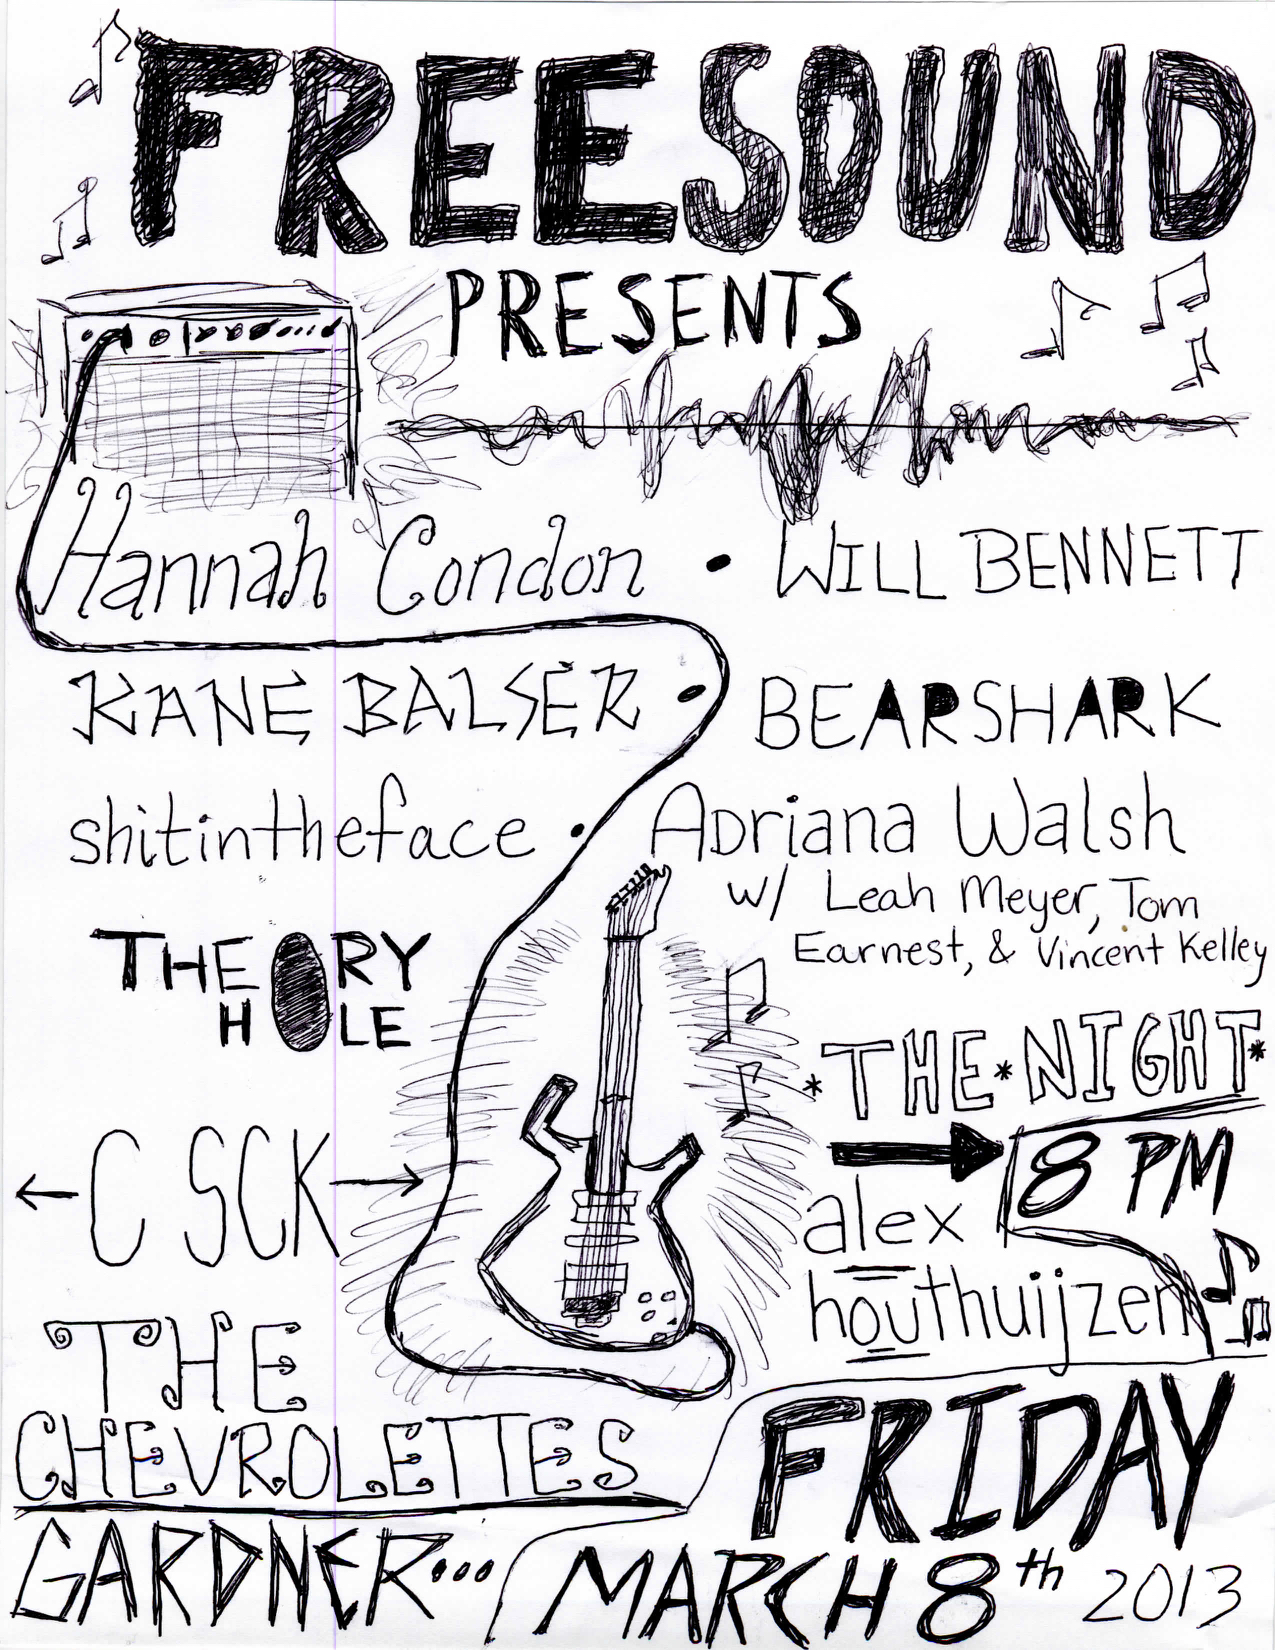 FREESOUND
PRESENTS
Hannah Condon • WILL BENNETT
KANE BALSER • BEARSHARK
shitintheface • Adriana Walsh
w/ Leah Meyer, Tom
Earnest, & Vincent Kelley
THEORY
HOLE
*THE*NIGHT*
8 PM
C SCK
alex
houthuijzen
THE
CHEVROLETTES
FRIDAY
GARDNER...
MARCH 8th 2013